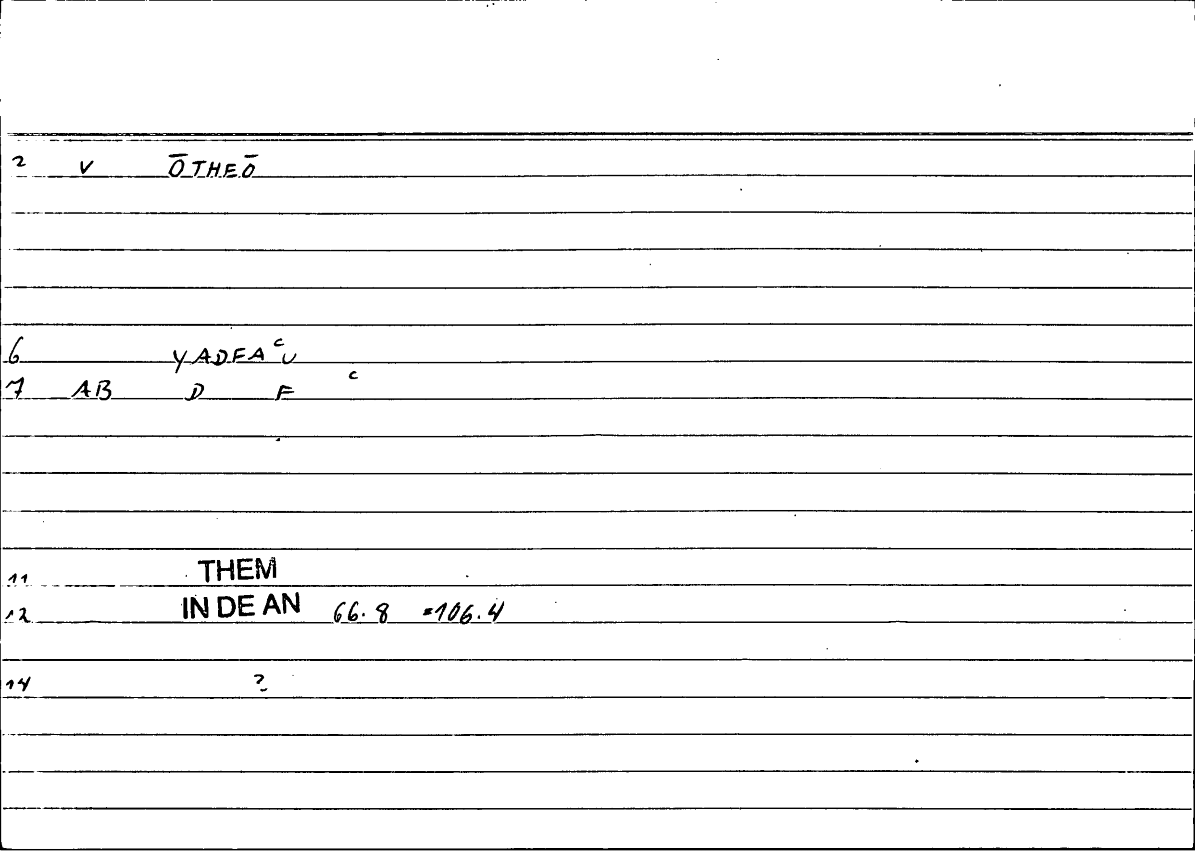 2 V ŌTHEŌ
6 YADFA ᶜ U
7 AB D F ᶜ
11 THEM
12 IN DE AN 66.8 =106.4
14 ?